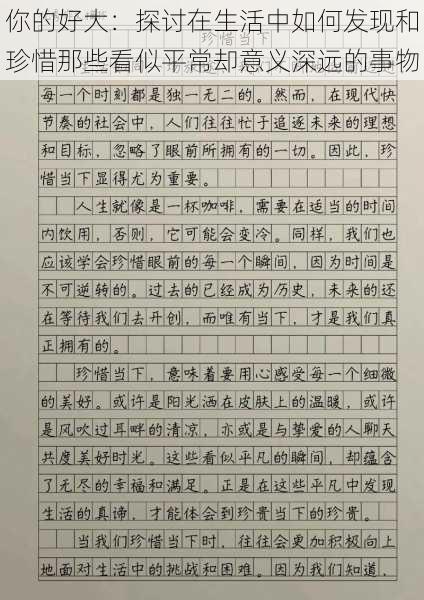 你的好大：探讨在生活中如何发现和
珍惜那些看似平常却意义深远的事物
珍惜当下
每一个时刻都是独一无二的。然而，在现代快
节奏的社会中，人们往往忙于追逐未来的理想
和目标，忽略了眼前所拥有的一切。因此，珍
惜当下显得尤为重要。
人生就像是一杯咖啡，需要在适当的时间
内饮用，否则，它可能会变冷。同样，我们也
应该学会珍惜眼前的每一个瞬间，因为时间是
不可逆转的。过去的已经成为历史，未来的还
在等待我们去开创，而唯有当下，才是我们真
正拥有的。
珍惜当下，意味着要用心感受每一个细微
的美好。或许是阳光洒在皮肤上的温暖，或许
是风吹过耳畔的清凉，亦或是与挚爱的人聊天
共度美好时光。这些看似平凡的瞬间，却蕴含
了无尽的幸福和满足。正是在这些平凡中发现
生活的真谛，才能体会到珍贵当下的珍贵。
当我们珍惜当下时，往往会更加积极向上
地面对生活中的挑战和困难。因为我们知道，